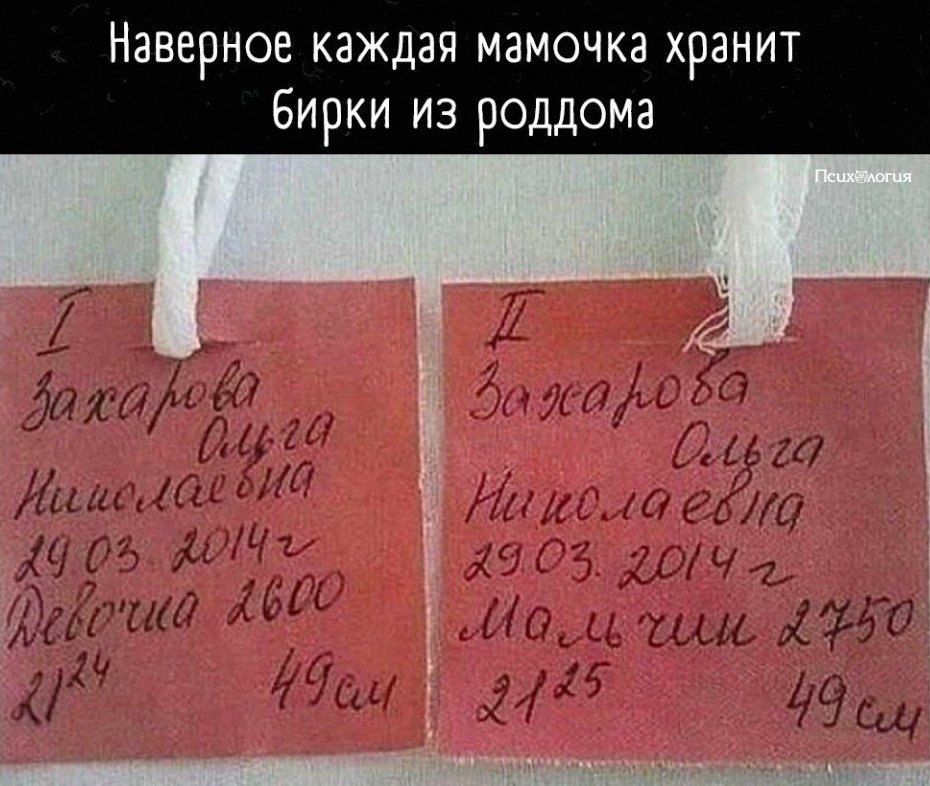 Наверное каждая мамочка хранит
бирки из роддома
Психология
I
Захарова
Ольга
Николаевна
29 03. 2014 г
Девочка 2600
21 24
49 см
II
Захарова
Ольга
Николаевна
29 03. 2014 г
Мальчик 2750
21 25
49 см